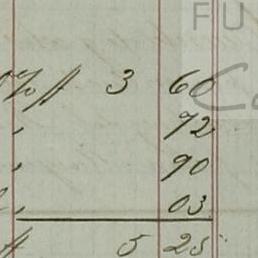 FU
% " 3 60
" 72
" 90
" 03
" 5 25